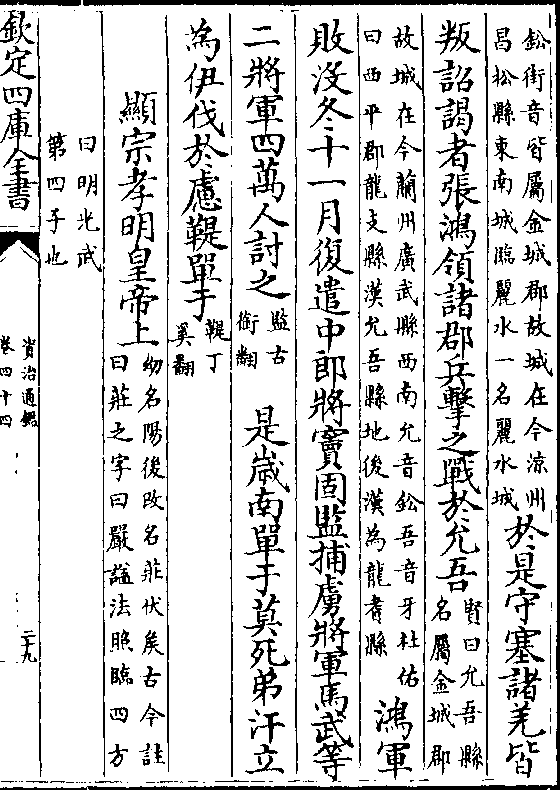 鈆銜音皆屬金城郡故城在今涼州
昌松縣東南城臨麗水一名麗水城
於是守塞諸羌皆
叛詔謁者張鴻領諸郡兵擊之戰於允吾
賢曰允吾縣
名屬金城郡
故城在今蘭州廣武縣西南允音鈆吾音牙杜佑
曰西平郡龍支縣漢允吾縣地後漢為龍耆縣
鴻軍
敗沒冬十一月復遣中郎將竇固監捕虜將軍馬武等
二將軍四萬人討之
監古
銜翻
是歲南單于莫死弟汗立
為伊伐於慮鞮單于
鞮丁
奚翻
顯宗孝明皇帝上
幼名陽後改名莊伏矦古今註
曰莊之字曰嚴諡法照臨四方
曰明光武
第四子也
欽定四庫全書
資治通鑑
卷四十四
二十九